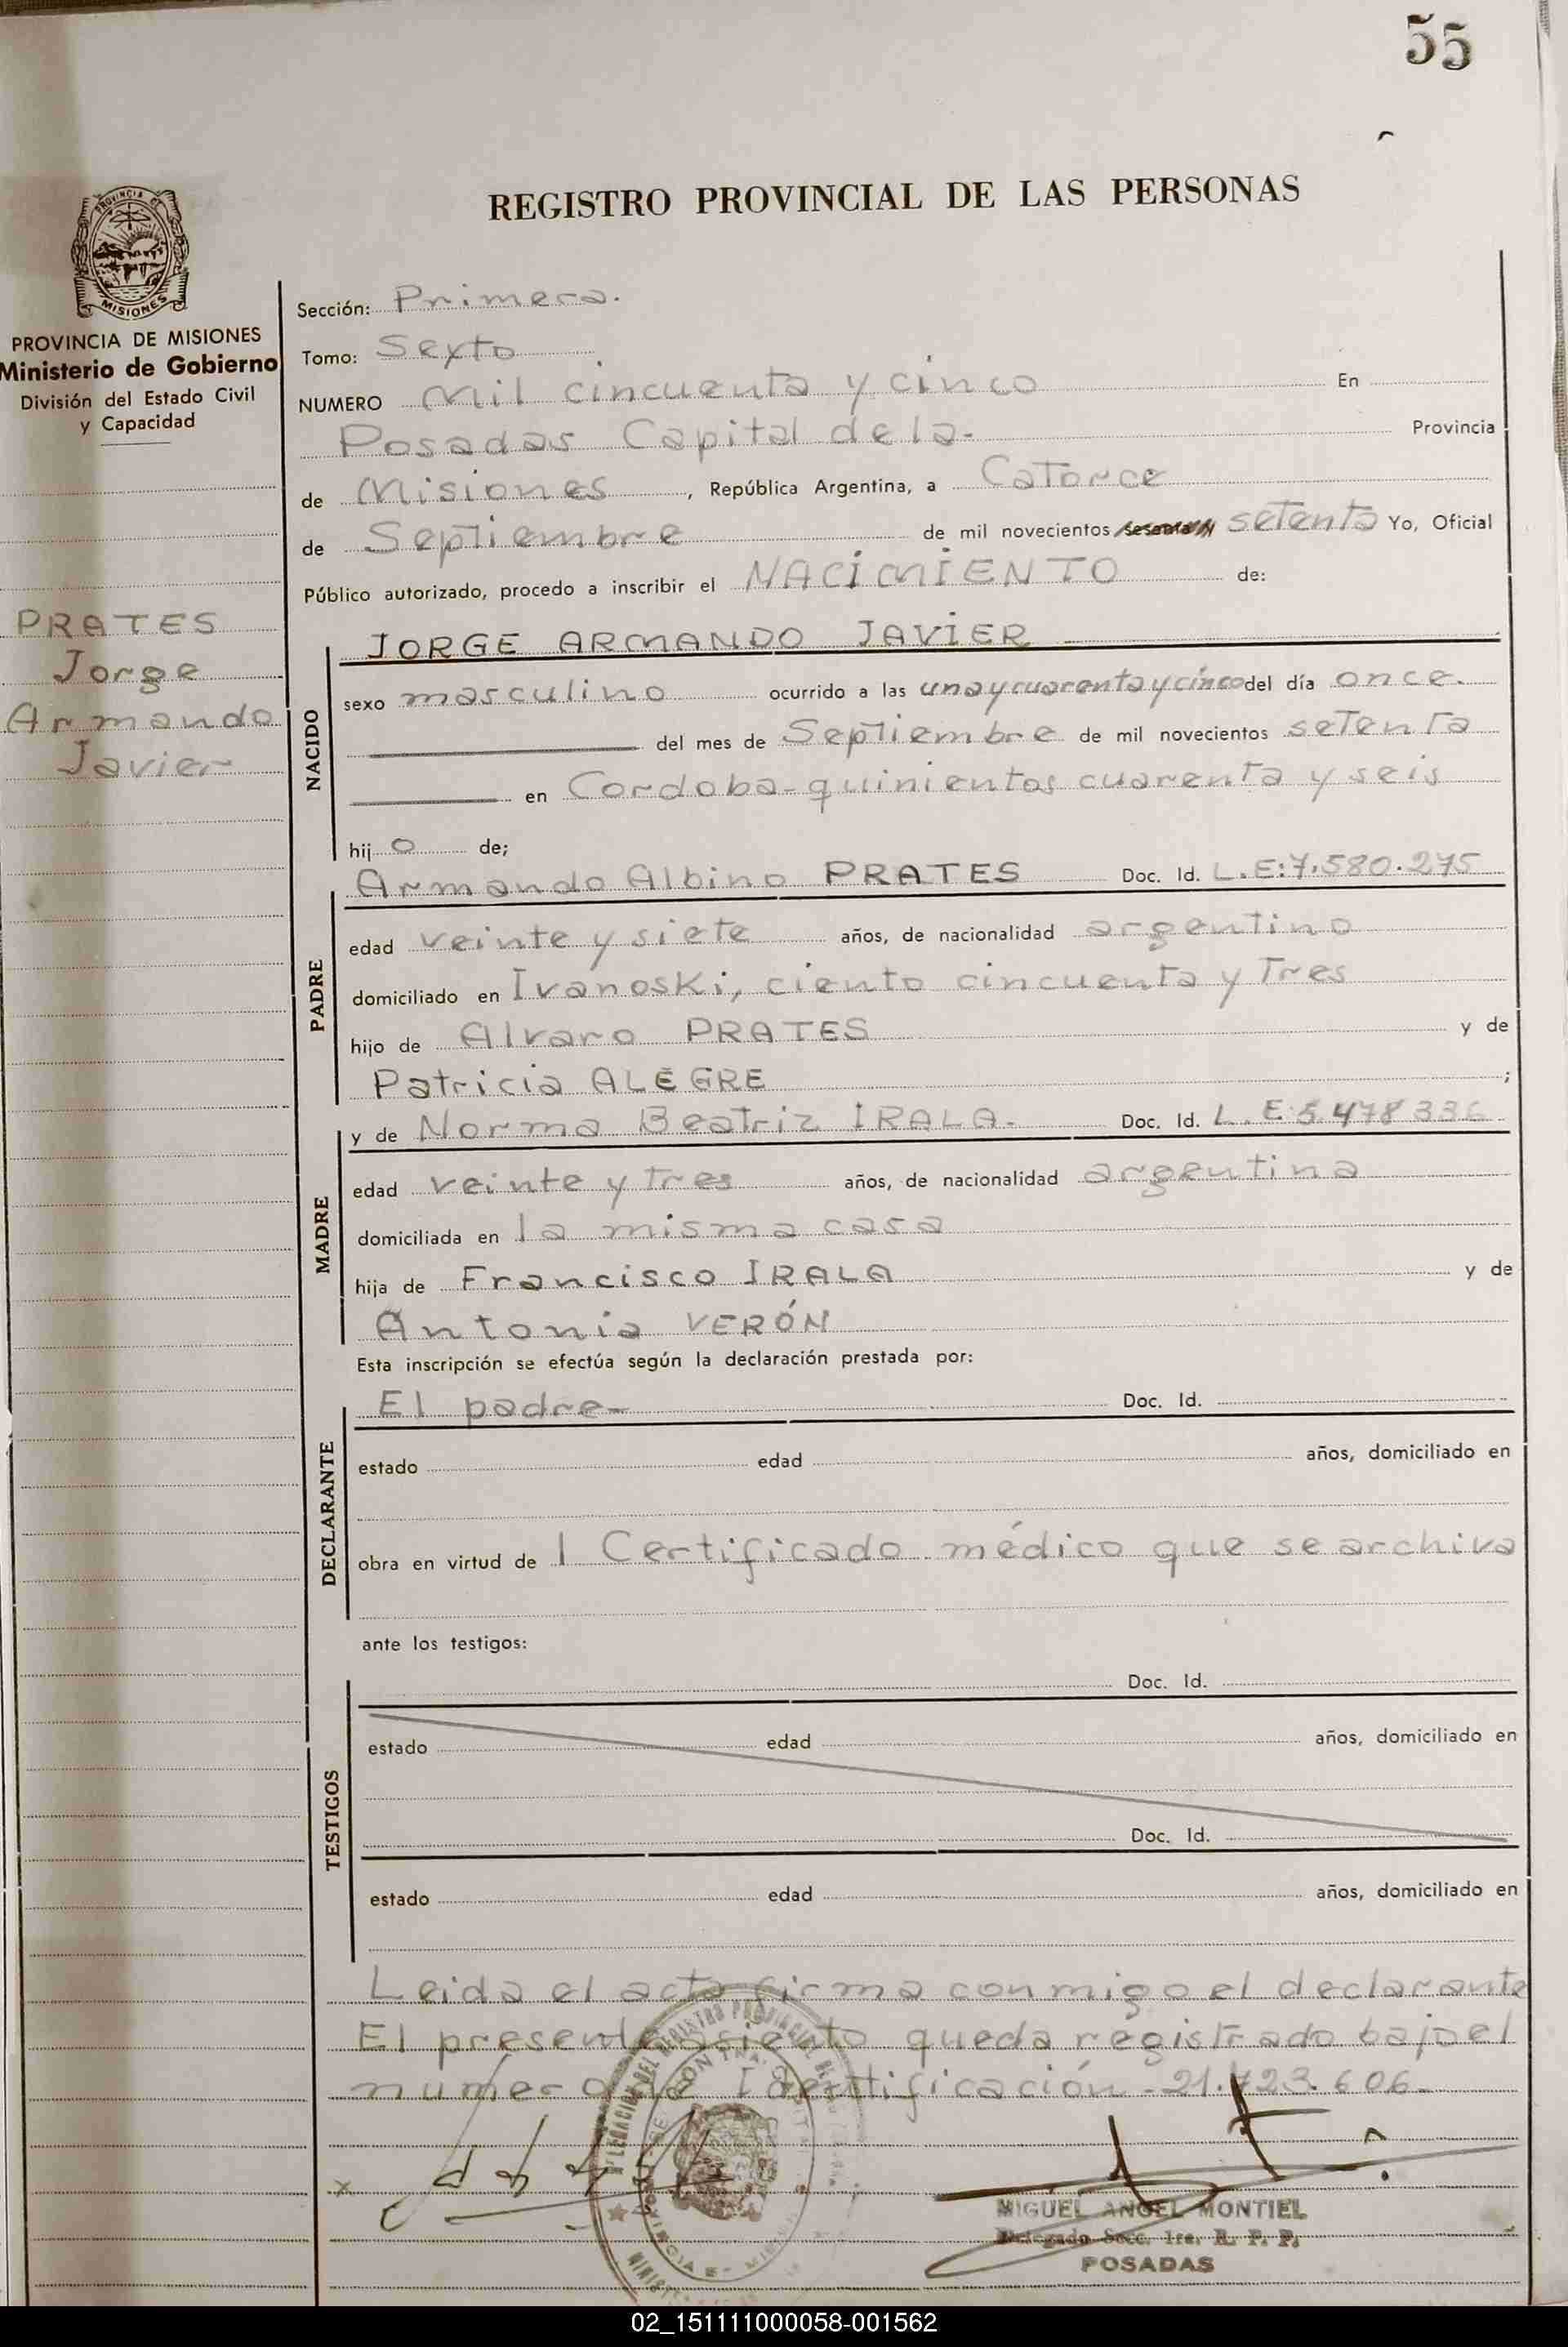 55
REGISTRO PROVINCIAL DE LAS PERSONAS
PROVINCIA DE MISIONES
PROVINCIA DE MISIONES
Ministerio de Gobierno
División del Estado Civil
y Capacidad
PRATES
Jorge
Armando
Javier
Sección: Primera.
Tomo: Sexto
NUMERO Mil cincuenta y cinco En
Posadas Capital de la- Provincia
de Misiones, República Argentina, a Catorce
de Septiembre de mil novecientos setenta Yo, Oficial
Público autorizado, procedo a inscribir el NACIMIENTO de:
JORGE ARMANDO JAVIER
NACIDO
sexo masculino ocurrido a las una y cuarenta y cinco del día once.
del mes de Septiembre de mil novecientos setenta
en Cordoba-quinientos cuarenta y seis
hijo de;
Armando Albino PRATES Doc. Id. L.E:7.580.275
PADRE
edad veinte y siete años, de nacionalidad argentino
domiciliado en Ivanoski, ciento cincuenta y Tres
hijo de Alvaro PRATES y de
Patricia ALEGRE ;
y de Norma Beatriz IRALA. Doc. Id. L.E:5.478336
MADRE
edad veinte y tres años, de nacionalidad argentina
domiciliada en la misma casa
hija de Francisco IRALA y de
Antonia VERÓN
Esta inscripción se efectúa según la declaración prestada por:
El padre- Doc. Id.
DECLARANTE
estado edad años, domiciliado en
obra en virtud de l Certificado médico que se archiva
ante los testigos:
Doc. Id.
TESTIGOS
estado edad años, domiciliado en
Doc. Id.
estado edad años, domiciliado en
Leida el acta firma conmigo el declarante
El presente asiento queda registrado bajo el
numero de Identificación-21.723.606-
MIGUEL ANGEL MONTIEL
Delegado Secc. 1ra. R. P. P.
POSADAS
02_151111000058-001562